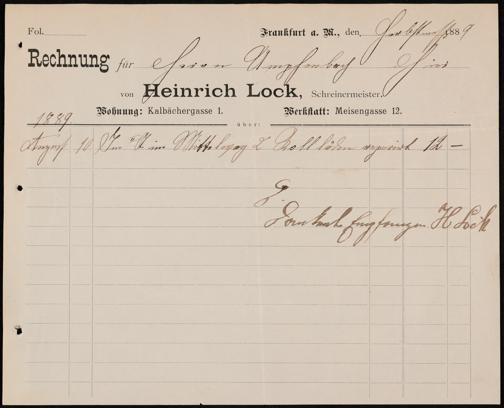 Fol. Frankfurt a. M., den Herbstmesse 1889
Rechnung für Herrn Umpfenbach hier
von Heinrich Lock, Schreinermeister.
Wohnung: Kalbächergasse 1. Werkstatt: Meisengasse 12.
1889 über:
August 10 Im im 2 Rollläden reparirt 12 —
Dankend Empfangen H Lock